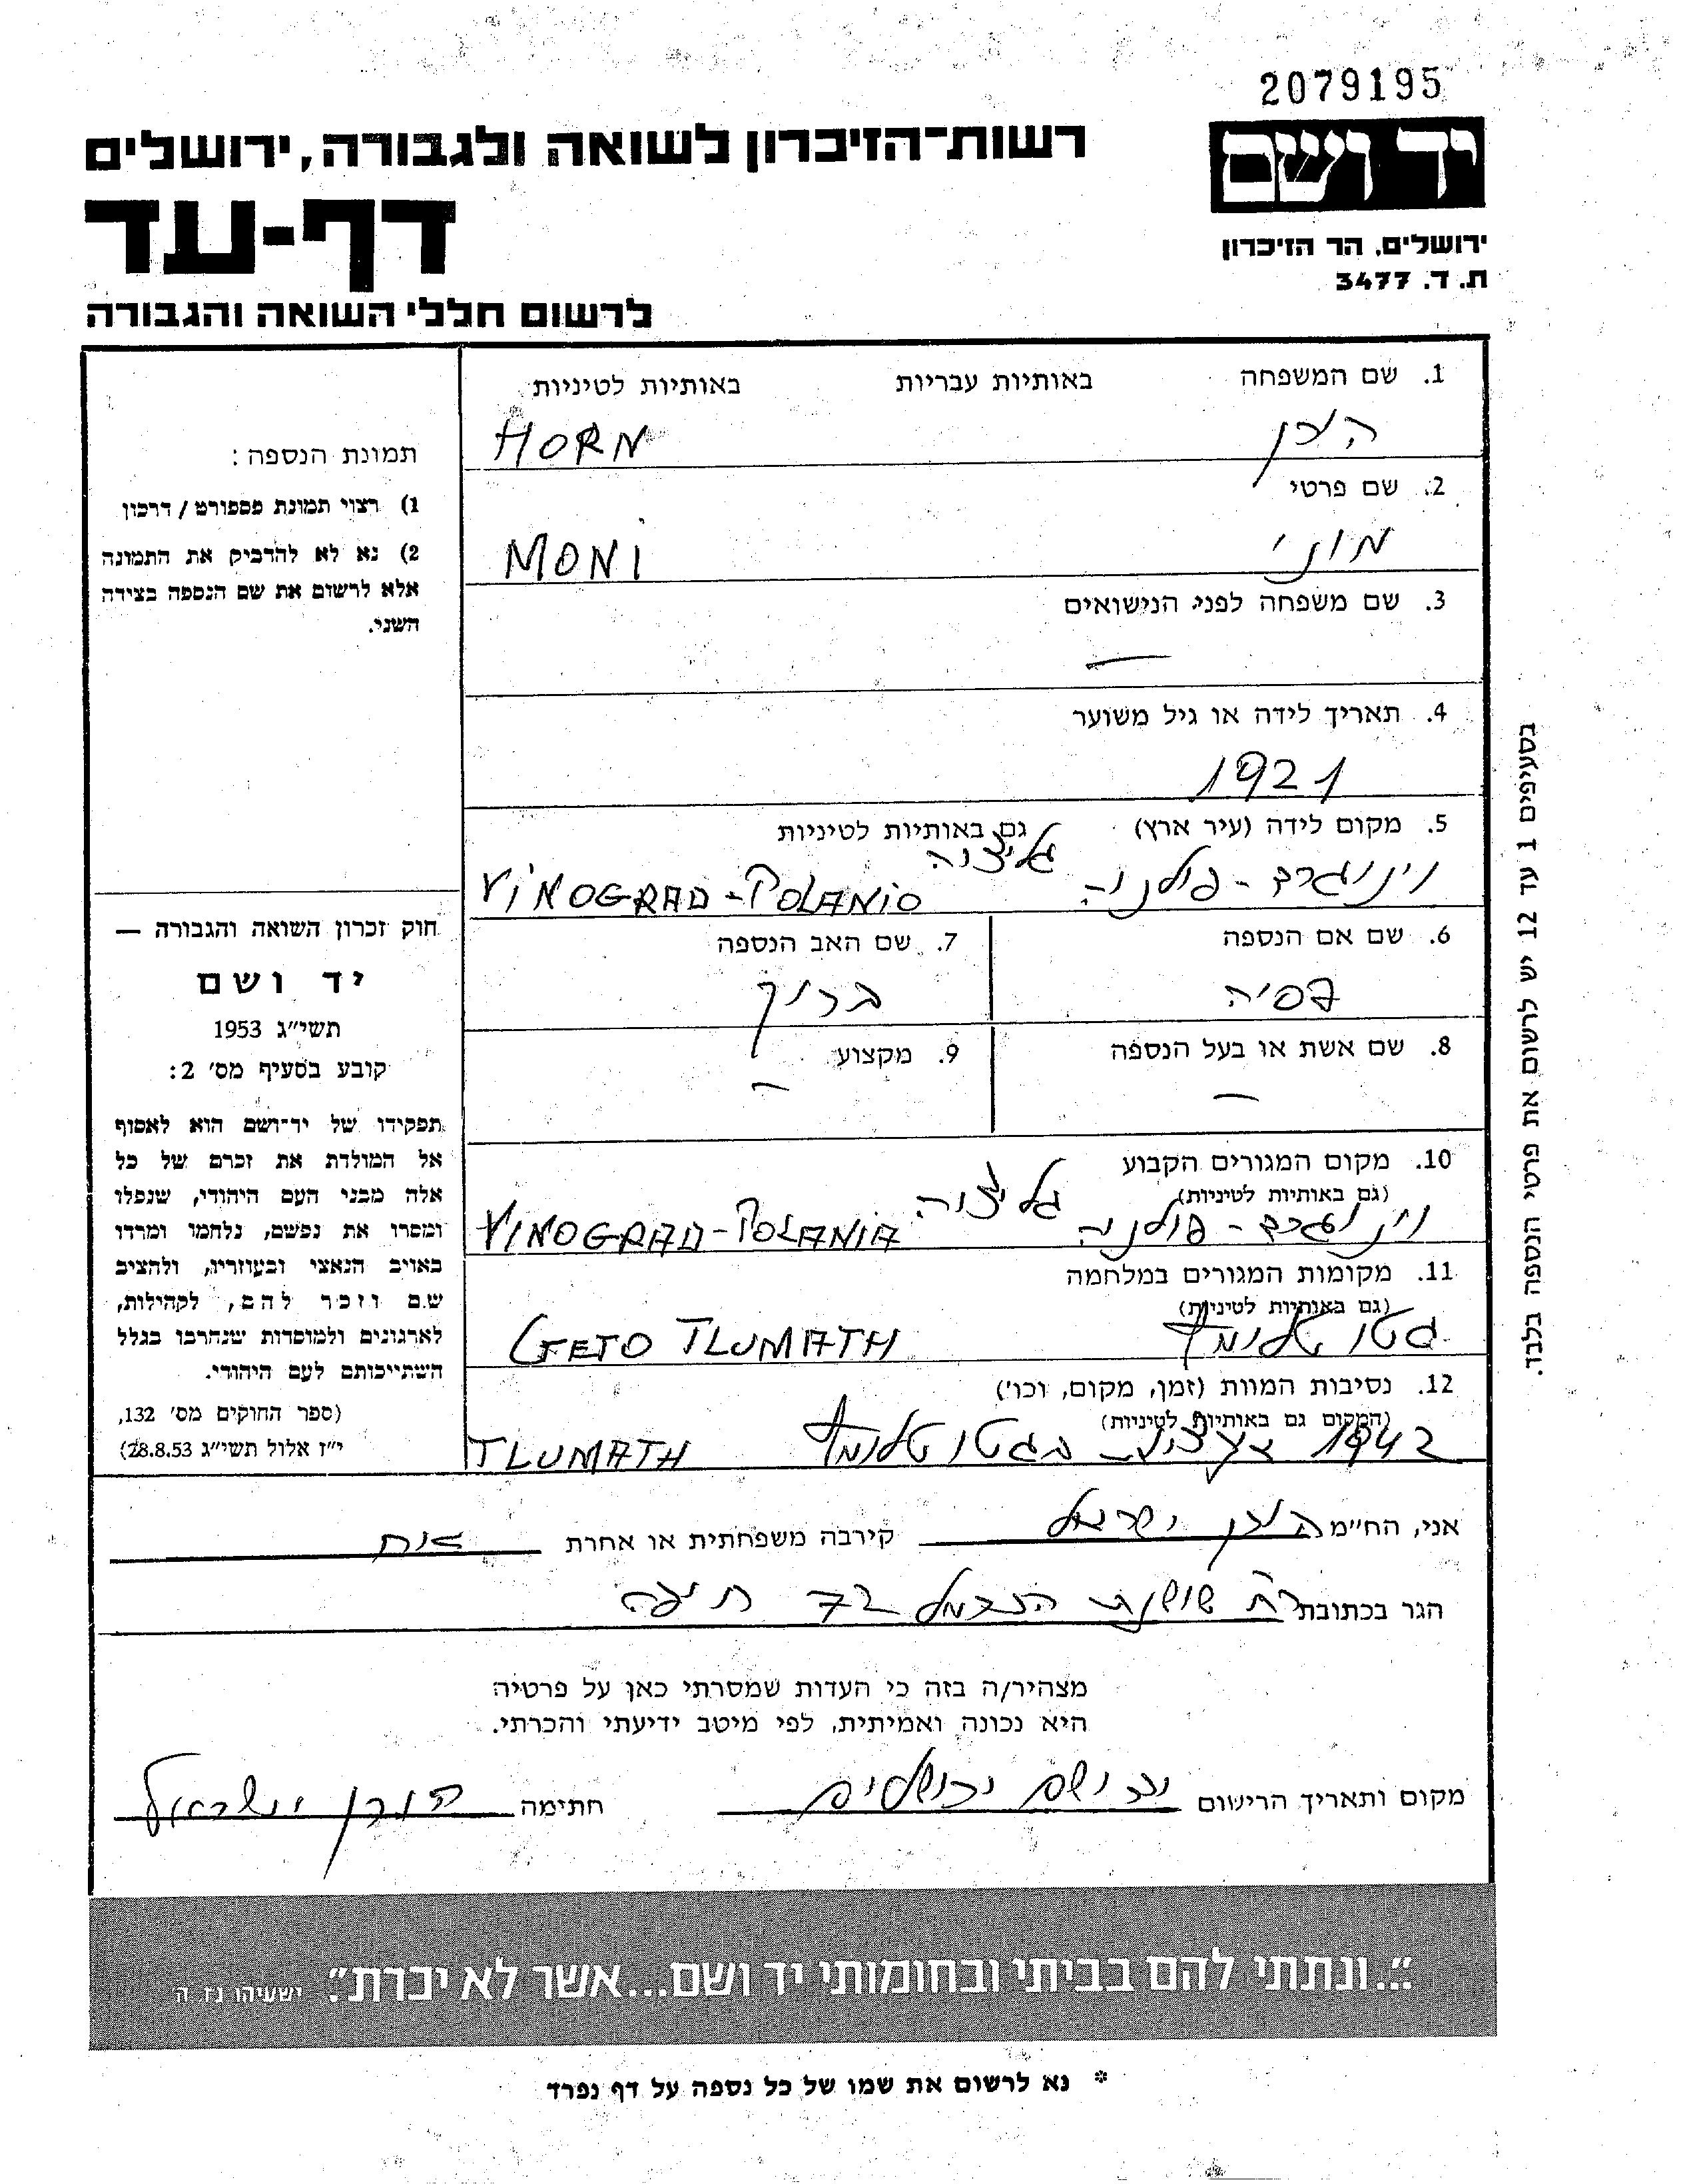 2079195
יד ושם
רשות־הזיכרון לשואה ולגבורה, ירושלים
דף-עד
ירושלים, הר הזיכרון
ת. ד. 3477
לרשום חללי השואה והגבורה
1. שם המשפחה באותיות עבריות באותיות לטיניות
הורן HORN
2. שם פרטי
מוני MONI
3. שם משפחה לפני הנישואים
—
4. תאריך לידה או גיל משוער
1921
5. מקום לידה (עיר ארץ) גם באותיות לטיניות
וינוגרד - פולניה גליציה VINOGRAD - POLANIO
6. שם אם הנספה 7. שם האב הנספה
פסיה ברוך
8. שם אשת או בעל הנספה 9. מקצוע
— —
10. מקום המגורים הקבוע
(גם באותיות לטיניות)
וינוגרד - פולניה גליציה VINOGRAD - POLANIA
11. מקומות המגורים במלחמה
(גם באותיות לטיניות)
גטו טלומץ GETO TLUMATH
12. נסיבות המוות (זמן, מקום, וכו')
(המקום גם באותיות לטיניות)
1942 בגטו טלומץ TLUMATH
תמונת הנספה :
1) רצוי תמונת פספורט / דרכון
2) נא לא להדביק את התמונה
אלא לרשום את שם הנספה בצידה
השני.
חוק זכרון השואה והגבורה —
יד ושם
תשי״ג 1953
קובע בסעיף מס׳ 2:
תפקידו של יד־ושם הוא לאסוף
אל המולדת את זכרם של כל
אלה מבני העם היהודי, שנפלו
ומסרו את נפשם, נלחמו ומרדו
באויב הנאצי ובעוזריו, ולהציב
שם וזכר להם, לקהילות,
לארגונים ולמוסדות שנחרבו בגלל
השתייכותם לעם היהודי.
(ספר החוקים מס׳ 132,
י״ז אלול תשי״ג 28.8.53)
בסעיפים 1 עד 12 יש לרשום את פרטי הנספה בלבד.
אני, הח״מ הורן ישראל קירבה משפחתית או אחרת אח
הגר בכתובת רח שושנת הכרמל 72 חיפה
מצהיר/ה בזה כי העדות שמסרתי כאן על פרטיה
היא נכונה ואמיתית, לפי מיטב ידיעתי והכרתי.
מקום ותאריך הרישום יד ושם ירושלים חתימה הורן ישראל
״...ונתתי להם בביתי ובחומותי יד ושם...אשר לא יכרת״. ישעיהו נו ה
* נא לרשום את שמו של כל נספה על דף נפרד